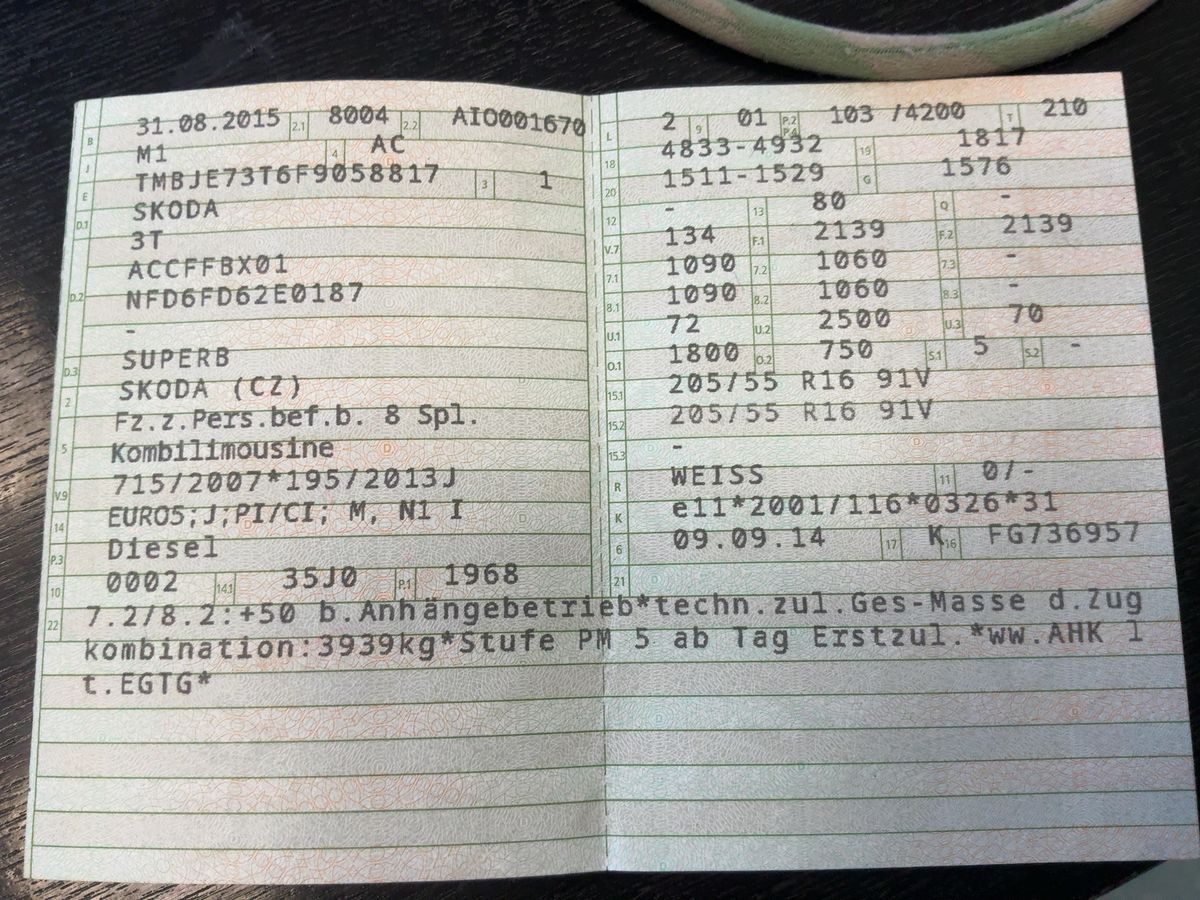 B 31.08.2015 2.1 8004 2.2 AIO001670
J M1 4 AC
E TMBJE73T6F9058817 3 1
D.1 SKODA
3T
ACCFFBX01
D.2 NFD6FD62E0187
-
D.3 SUPERB
2 SKODA (CZ)
Fz.z.Pers.bef.b. 8 Spl.
5 Kombilimousine
V.9 715/2007*195/2013J
14 EURO5;J;PI/CI; M, N1 I
P.3 Diesel
10 0002 14.1 35J0 P.1 1968
L 2 9 01 P.2 P.4 103 /4200 T 210
18 4833-4932 19 1817
20 1511-1529 G 1576
12 - 13 80 Q -
V.7 134 F.1 2139 F.2 2139
7.1 1090 7.2 1060 7.3 -
8.1 1090 8.2 1060 8.3 -
U.1 72 U.2 2500 U.3 70
O.1 1800 O.2 750 S.1 5 S.2 -
15.1 205/55 R16 91V
15.2 205/55 R16 91V
15.3 -
R WEISS 11 0/-
K e11*2001/116*0326*31
6 09.09.14 17 K 16 FG736957
21
22 7.2/8.2:+50 b.Anhängebetrieb*techn.zul.Ges-Masse d.Zug
kombination:3939kg*Stufe PM 5 ab Tag Erstzul.*ww.AHK l
t.EGTG*